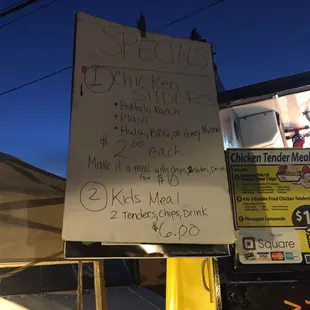 SPECIALS
1 CHICKEN
SLIDERS
• Buffalo Ranch
• Plain
• Hula, BBQ, or Honey Mustard
$2.00 each
Make it a meal with chips, 2 sliders, Drink
for $10
2 Kids Meal
2 Tenders, Chips, Drink
$6.00
Chicken Tender Meal
Pineapple Lemonade
$1
Square